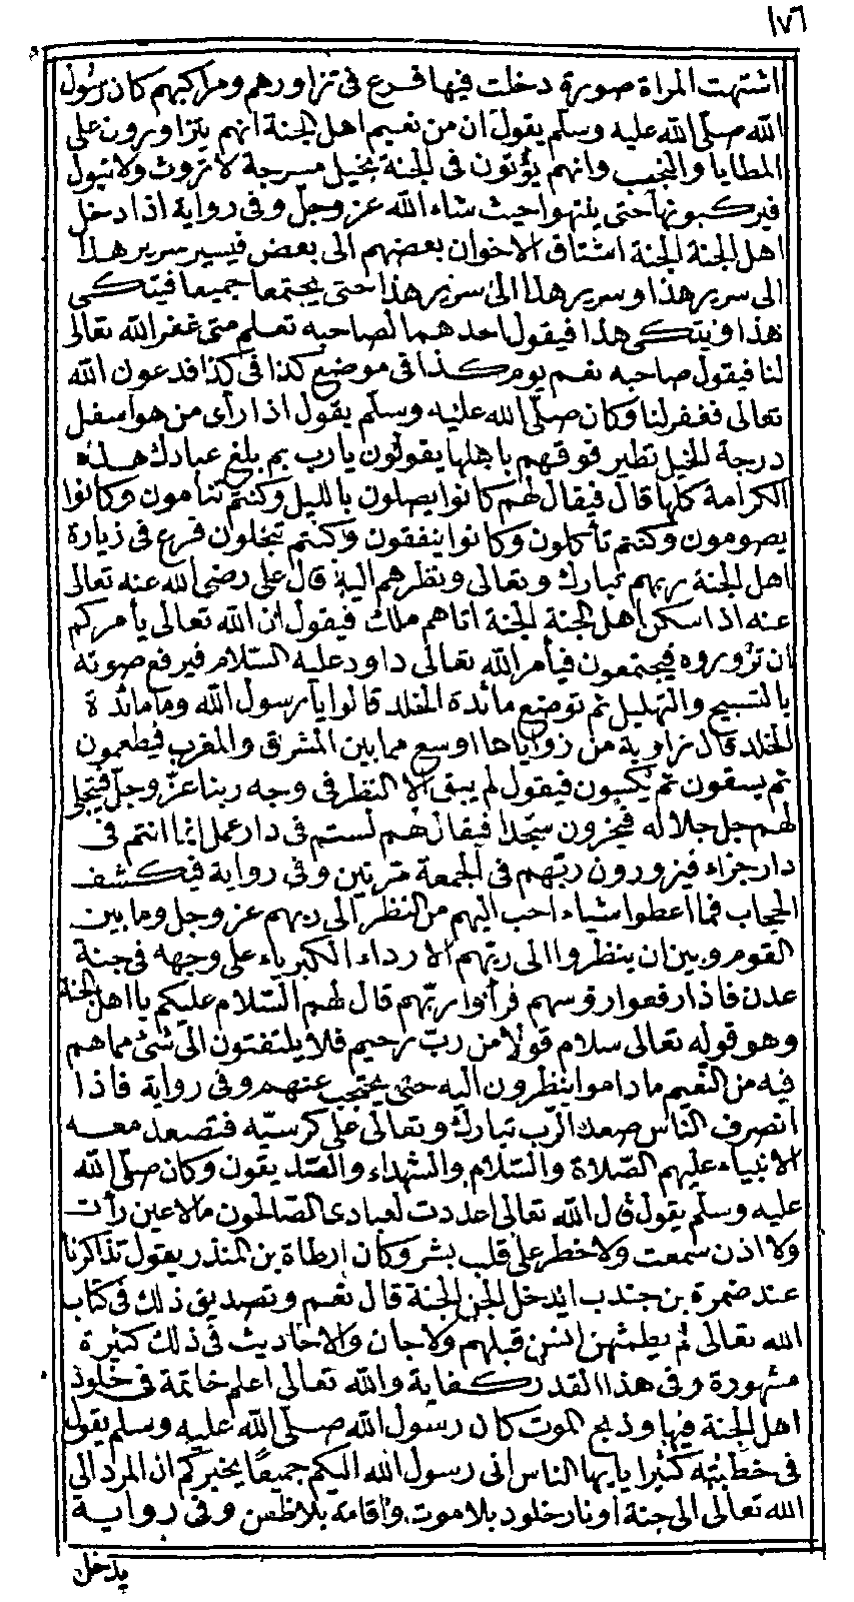 ١٧٦
اشتهت المراة صورة دخلت فيها فرع في تزاورهم ومراكبهم كان رسول
الله صلّى الله عليه وسلّم يقول ان من نعيم اهل الجنة انهم يتزاورون على
المطايا والنجب وانهم يؤتون في الجنة بخيل مسرجة لا تروث ولا تبول
فيركبونها حتى ينتهوا حيث شاء الله عز وجلّ وفي رواية اذا دخل
اهل الجنة الجنة اشتاق الاخوان بعضهم الى بعض فيسير سرير هذا
الى سرير هذا وسرير هذا الى سرير هذا حتى يجتمعا جميعا فيتكى
هذا ويتكى هذا فيقول احدهما لصاحبه تعلم متى غفر الله تعالى
لنا فيقول صاحبه نعم يوم كذا في موضع كذا في كذا فدعون الله
تعالى فغفر لنا وكان صلّى الله عليه وسلّم يقول اذا رأى من هو اسفل
درجة الخيل تطير فوقهم باهلها يقولون يا رب بم بلغ عبادك هذه
الكرامة كلها قال فيقال لهم كانوا يصلون بالليل وكنتم تنامون وكانوا
يصومون وكنتم تأكلون وكانوا ينفقون وكنتم تبخلون فرع في زيارة
اهل الجنة ربهم تبارك وتعالى ونظرهم اليه قال على رضى الله عنه تعالى
عنه اذا سكن اهل الجنة الجنة اتاهم ملك فيقول ان الله تعالى يأمركم
ان تزوروه فيجتمعون فيأمر الله تعالى داود عليه السّلام فيرفع صوته
بالتسبيح والتهليل ثم توضع مائدة الخلد قالوا يا رسول الله وما مائدة
الخلد قال زاوية من زواياها اوسع مما بين المشرق والمغرب فيطعمون
ثم يسقون ثم يكسون فيقول لم يبق الا النظر في وجه ربنا عزّ وجلّ فيتجلى
لهم جل جلاله فيخرون سجّدا فيقال هم لستم في دار عمل انما انتم في
دار جزاء فيزورون ربّهم في الجمعة مرتين وفي رواية فيكشف
الحجاب فما اعطوا شيئا احب اليهم من النظر الى ربهم عز وجل وما بين
القوم وبين ان ينظروا الى ربّهم الا رداء الكبرياء على وجهه في جنة
عدن فاذا رفعوا رؤسهم فرأوا ربّهم قال لهم السّلام عليكم يا اهل الجنة
وهو قوله تعالى سلام قولا من ربّ رحيم فلا يلتفتون الى شئ مما هم
فيه من النّعيم ما داموا ينظرون اليه حتى يحتجب عنهم وفي رواية فاذا
انصرف النّاس صعد الرّب تبارك وتعالى على كرسيّه فتصعد معه
الانبياء عليهم الصّلاة والسّلام والشهداء والصّديقون وكان صلّى الله
عليه وسلّم يقول قال الله تعالى اعددت لعبادى الصّالحون ما لا عين رأت
ولا اذن سمعت ولا خطر على قلب بشر وكان ارطاة بن المنذر يقول تذاكرنا
عند ضمرة بن جندب ايدخل الجن الجنة قال نعم وتصديق ذلك في كتاب
الله تعالى لم يطمثهن انس قبلهم ولا جان والاحاديث في ذلك كثيرة
مشهورة وفي هذا القدر كفاية والله تعالى اعلم خاتمة في خلود
اهل الجنة فيها وذبح الموت كان رسول الله صلّى الله عليه وسلم يقول
في خطبته كثيرا يا ايها الناس انى رسول الله اليكم جميعًا يخبركم ان المرد الى
الله تعالى الى جنة او نار خلود بلا موت واقامة بلا ظعن وفي رواية
يدخل